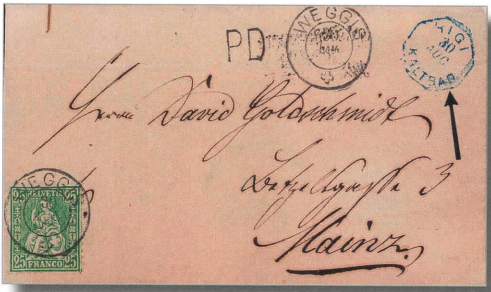 PD
WEGGIS
RIGI
30
AUG
KALTBAD
Herrn David Goldschmidt
Betzelsgasse 3
Mainz
WEGGIS
HELVETIA
25 25
25 FRANCO 25